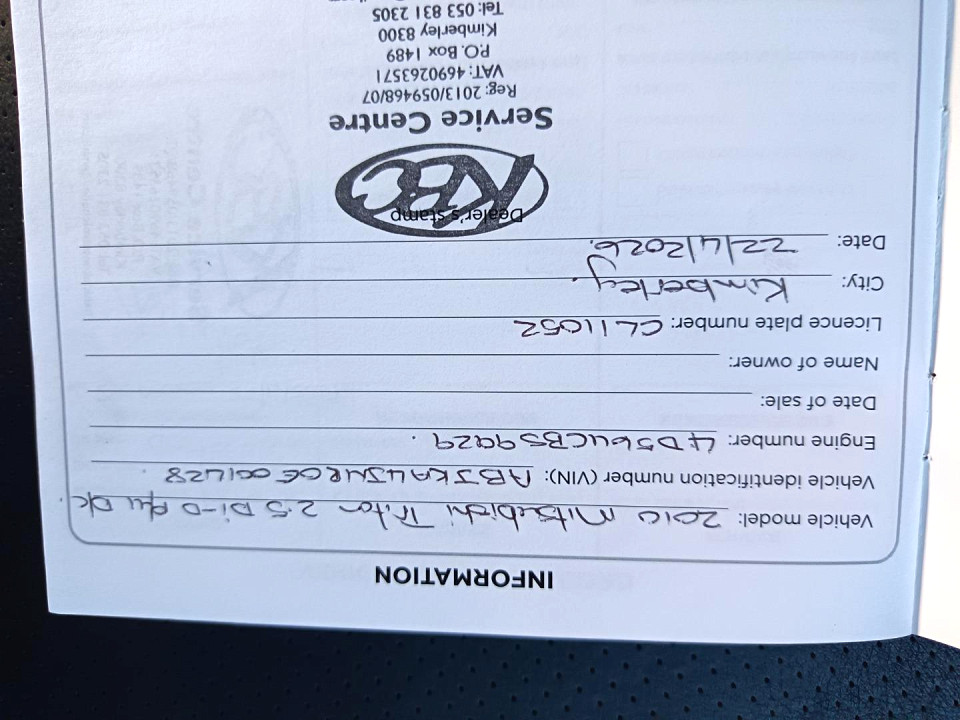 INFORMATION
Vehicle model: 2010 Mitsubishi Triton 2.5 Di-D P/u D/c.
Vehicle identification number (VIN):
Engine number:
Date of sale:
Name of owner:
Licence plate number: CL11052
City: Kimberley.
Date: 22/4/2026.
Dealer's stamp
KBC
Service Centre
Reg: 2013/059468/07
VAT: 4690263571
P.O. Box 1489
Kimberley 8300
Tel: 053 831 2305